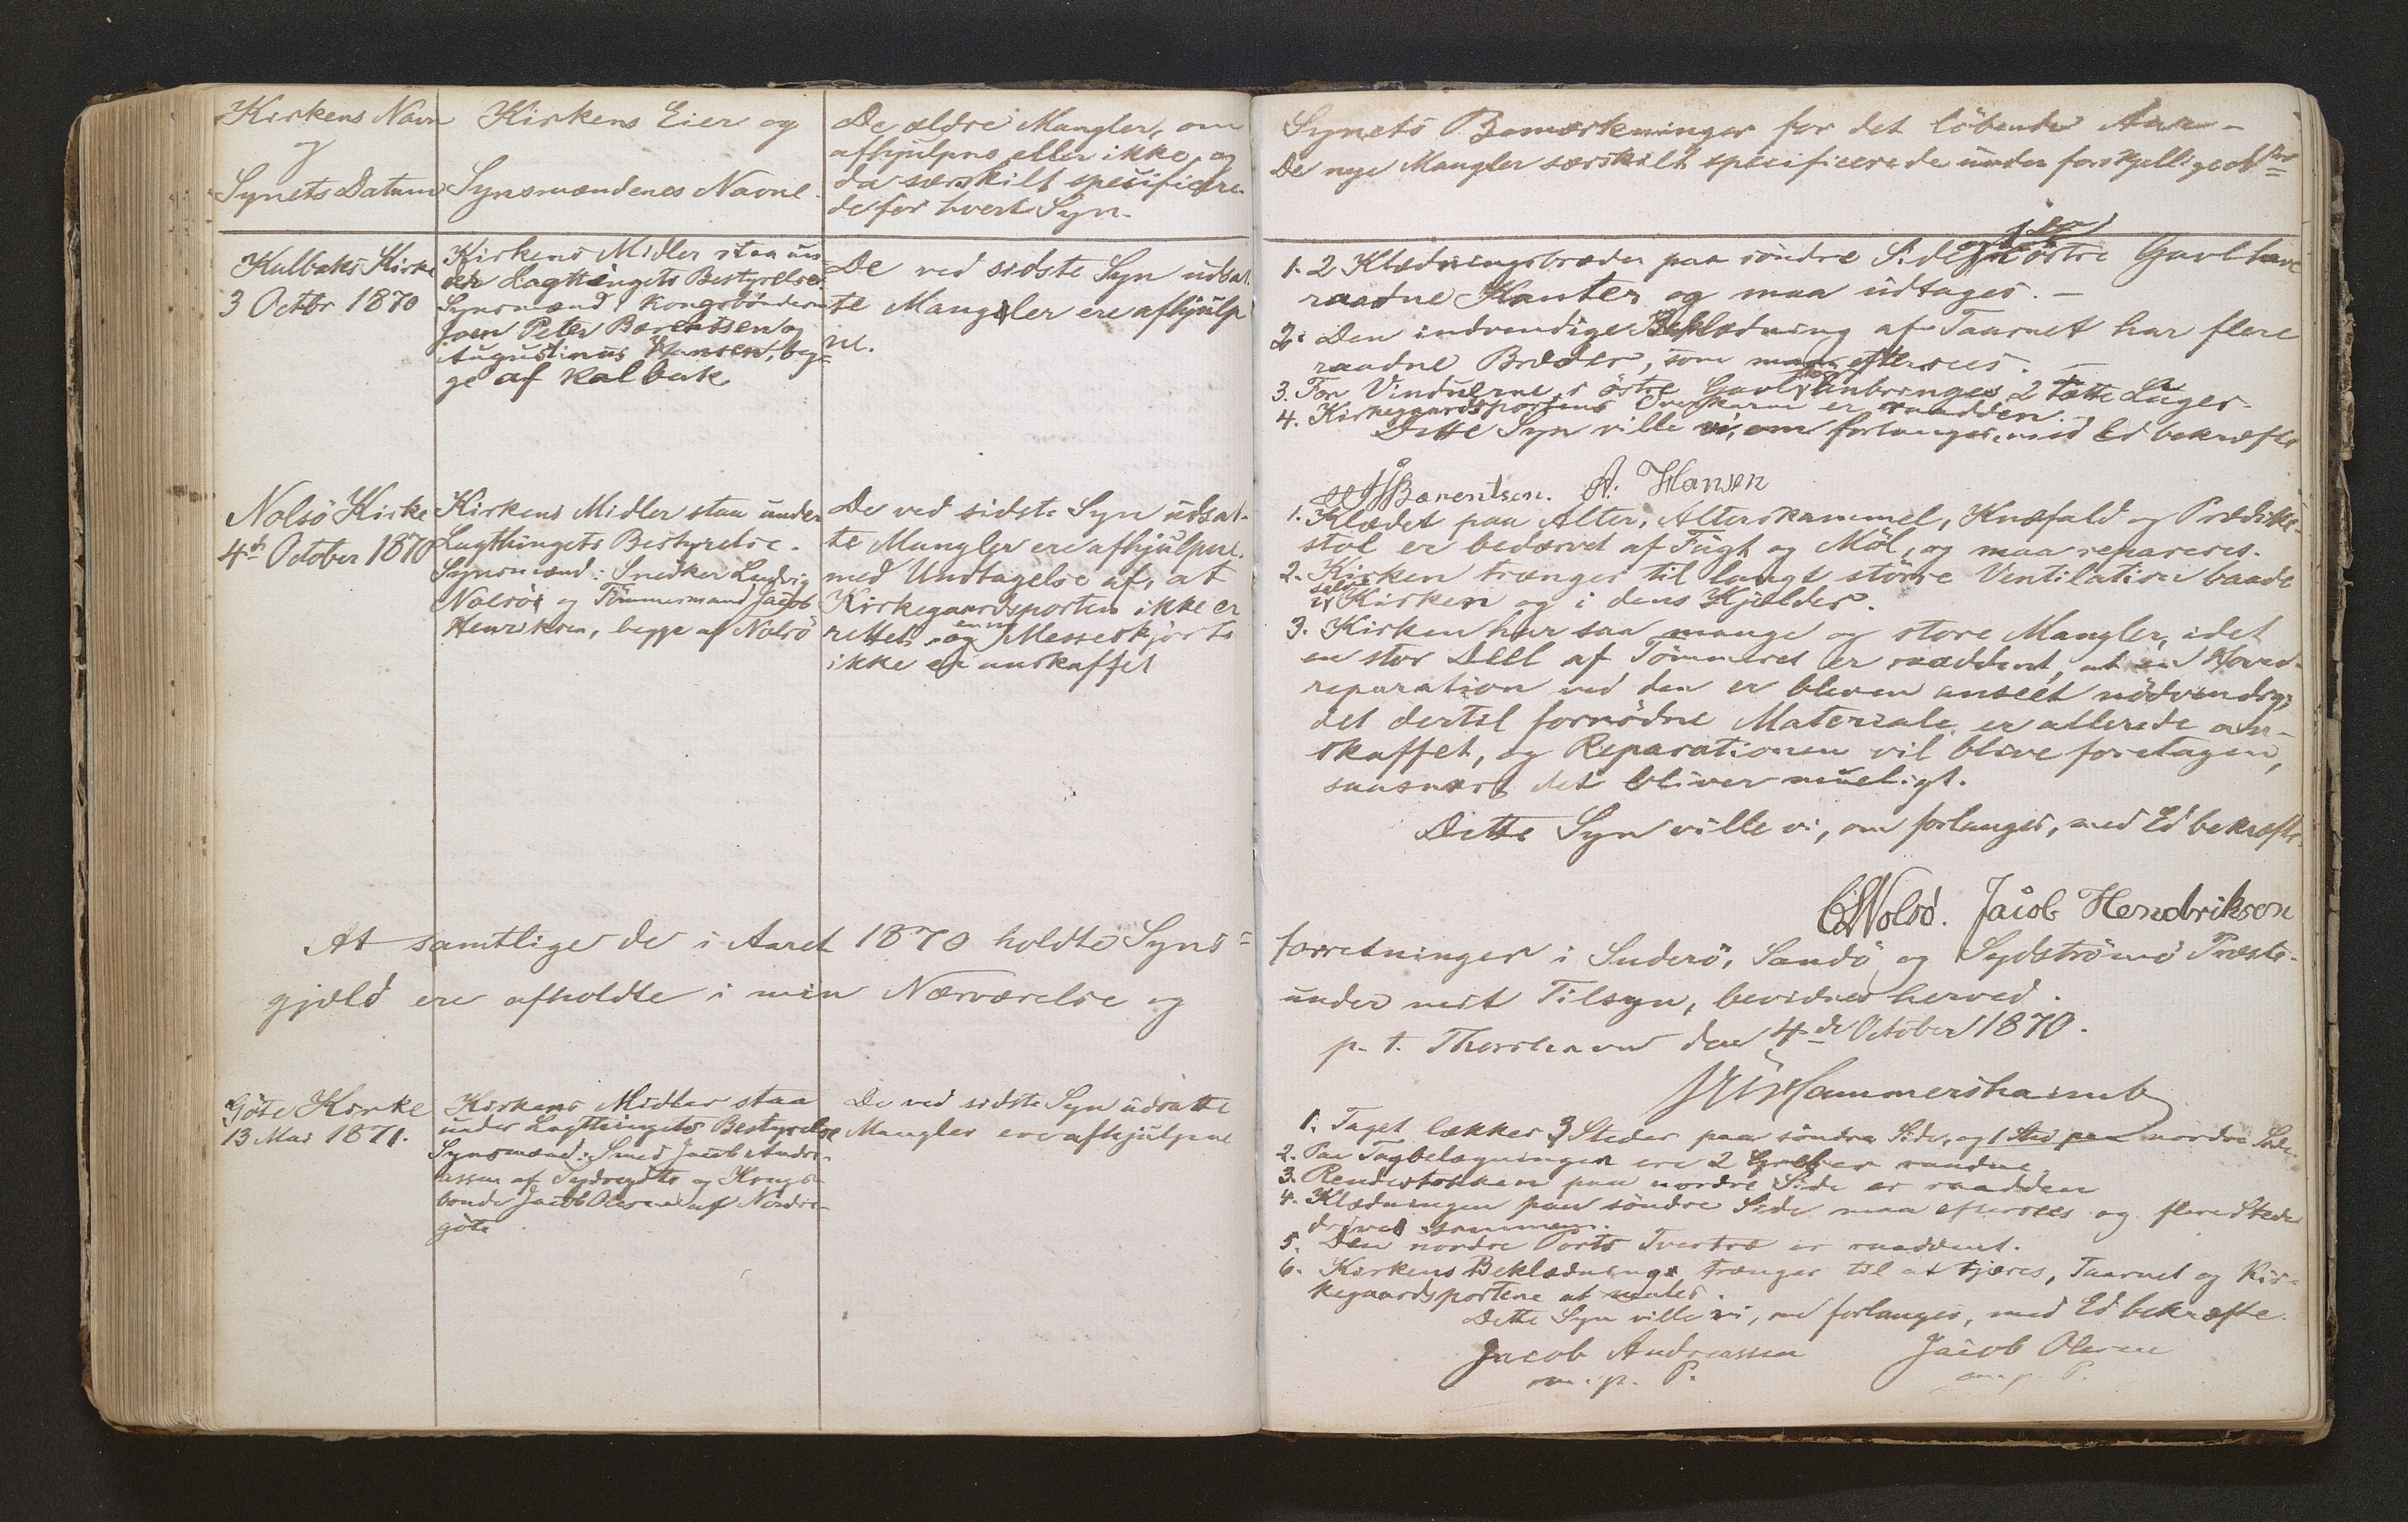 Kirkens Navn
og
Synets Datum
Kirkens Eier og
Synsmændenes Navne.
De ældre Mangler, om
afhjulpne eller ikke, og
da særskilt specificere-
de for hvert Syn.
Kalbaks Kirke
3 Octbr 1870
Kirkens Midler staa un-
der Lagthingets Bestyrelse.
Synsmænd Kongsbönderne
Joen Peter Barentsen og
Augustinus Hansen, beg-
ge af Kalbak
De ved sidste Syn udsat-
te Mangler ere afhjulp
ne.
Nolsö Kirke
4de October 1870
Kirkens Midler staa under
Lagthingets Bestyrelse.
Synsmænd: Snedker Ludvig
Nolsöe og Tömmermand Jacob
Henriksen, begge af Nolsö
De ved sidste Syn udsat-
te Mangler ere afhjulpne.
med Undtagelse af, at
Kirkegaardsporten ikke er
rettet og en ny Messeskjorte
ikke er anskaffet
At samtlige de i Aaret 1870 holdte Syns=
gjæld ere afholdte i min Nærværelse og
Göte Kirke
13 Mai 1871.
Kirkens Midler staa
under Lagthingets Bestyrelse
Synsmænd: Smed Jacob Andre-
assen af Sydregöte og Kongs-
bonde Jacob Olesen af Nordre-
göte
De ved sidste Syn udsatte
Mangler ere afhjulpne
Synets Bemærkninger for det löbende Aar –
De nye Mangler særskilt specificerede under forskjellige
1. 2 Klædningsbræder paa söndre Side östre Gavl have
raadne Kanter og maa udtages. –
2. Den indvendige Beklædning af Taarnet har flere
raadne Bræder, som maa eftersees. –
3. For Vinduerne i östre Gavl anbringes 2 tætte Luger.
4. Kirkegaardsportens er raadden. –
Dette Syn ville vi, om forlanges, med Ed bekræfte
JPBarentsen. A. Hansen
1. Klædet paa Alter, Alterskammel, Knæfald og Prædike-
stol er bedærvet af Fugt og Möl, og maa repareres.
2. Kirken trænger til langt större Ventilation baade
i selve Kirken og i dens Kjelder.
3. Kirken har saa mange og store Mangler, idet
en stor Deel af Tömmeret er raaddent, at en Hoved-
reparation ved den er bleven anseet nödvendig;
det dertil fornödne Materiale er allerede an-
skaffet, og Reparationen vil blive foretagen,
saasnart det bliver mueligt.
Dette Syn ville vi, om forlanges, med Ed bekræfte.
Nolsö. Jacob Hendriksen
forretninger i Suderö, Sandö og Sydströmö Præste-
under mit Tilsyn, bevidnes herved.
p. t. Thorshavn den 4de October 1870.
Hammershaimb
1. Taget lækker 3 Steder paa söndre Side, og 1 Sted paa nordre Side.
2. Paa Tagbelægningen ere 2 raadne
3. Rendestokken paa nordre Side er raadden
4. Klædningen paa söndre Side maa eftersees og flere Steder
drives sammen.
5. Den nordre Ports Tvertræ er raaddent.
6. Kirkens Beklædning trænger til at tjæres, Taarnet og Kir-
kegaardsportene at males.
Dette Syn ville vi, om forlanges, med Ed bekræfte.
Jacob Andreassen Jacob Olesen
m. p. P. m. p. P.